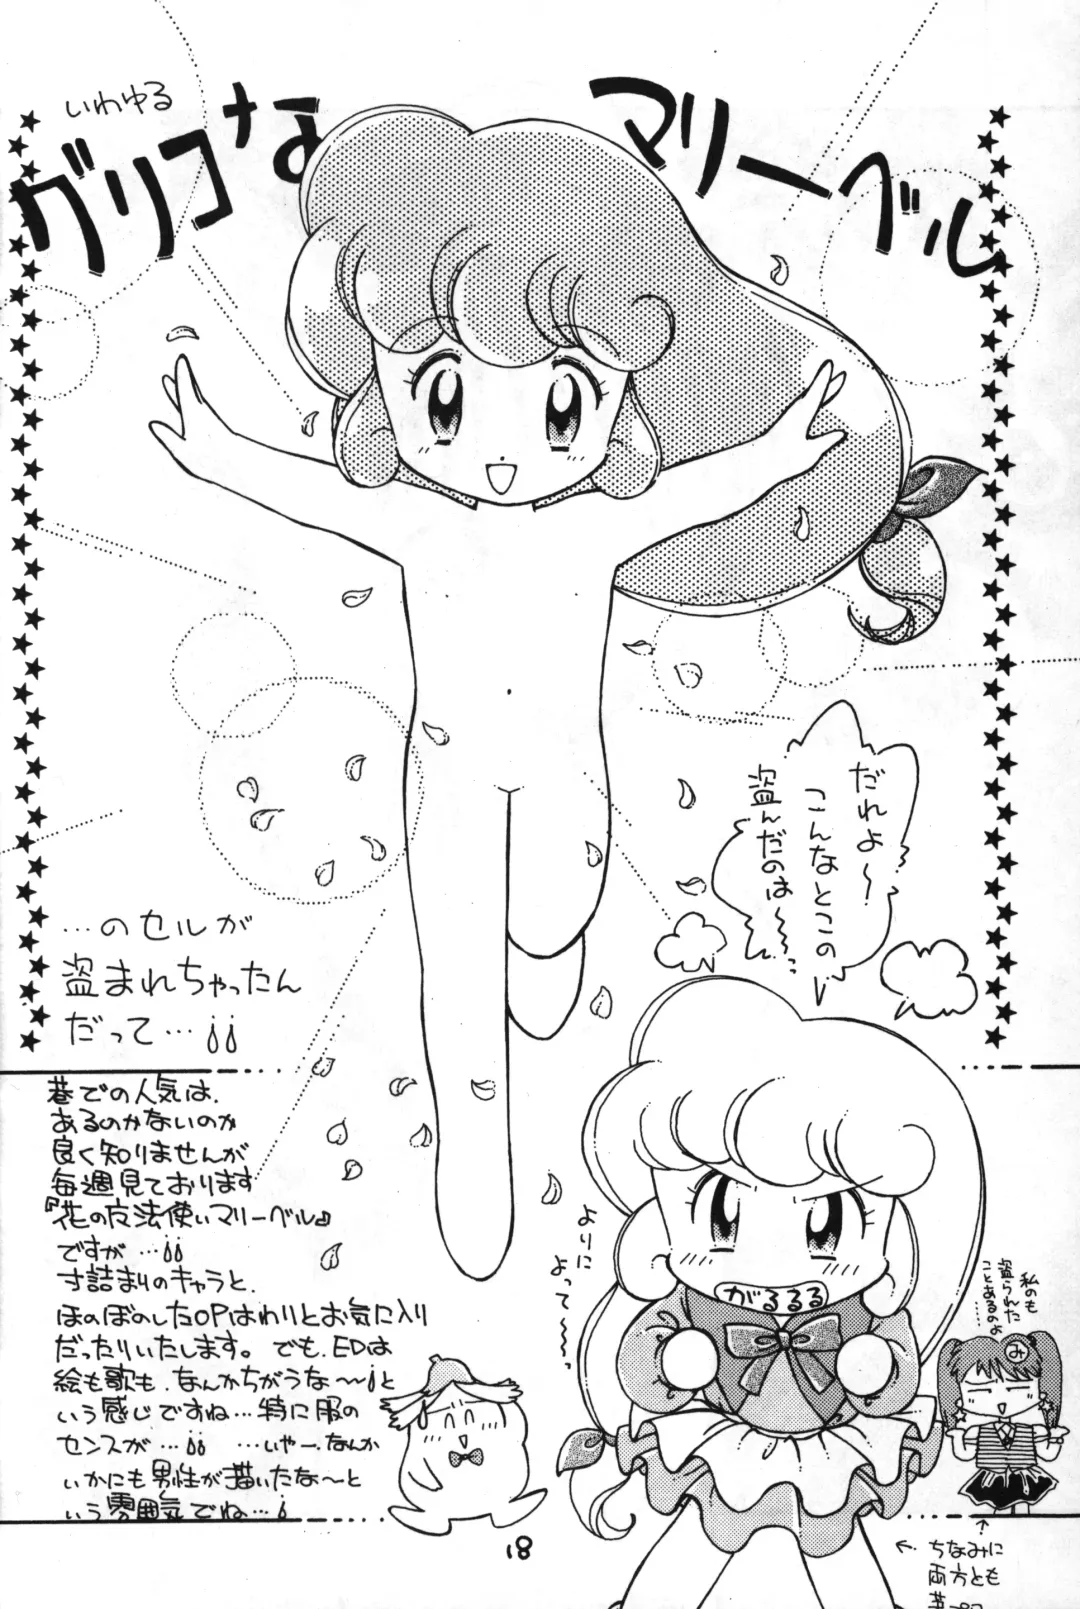 いわゆる
グリコな
マリーベル
だれよ〜
こんなとこの
盗んだのは〜〜っ
…のセルが
盗まれちゃったん
だって…
巷での人気は、
あるのかないのか
良く知りませんが
毎週見ております
『花の魔法使いマリーベル』
ですが…
寸詰まりのキャラと、
ほのぼのしたOPはわりとお気に入り
だったりいたします。でも、EDは
絵も歌も、なんかちがうな〜と
いう感じですね…特に服の
センスが… …いやー、なんか
いかにも男性が描いたな〜と
いう雰囲気でね…
よりに
よって〜〜っ
がるるる
私のも
盗られた
ことあるのよ
……
み
18
← ↑
ちなみに
両方とも